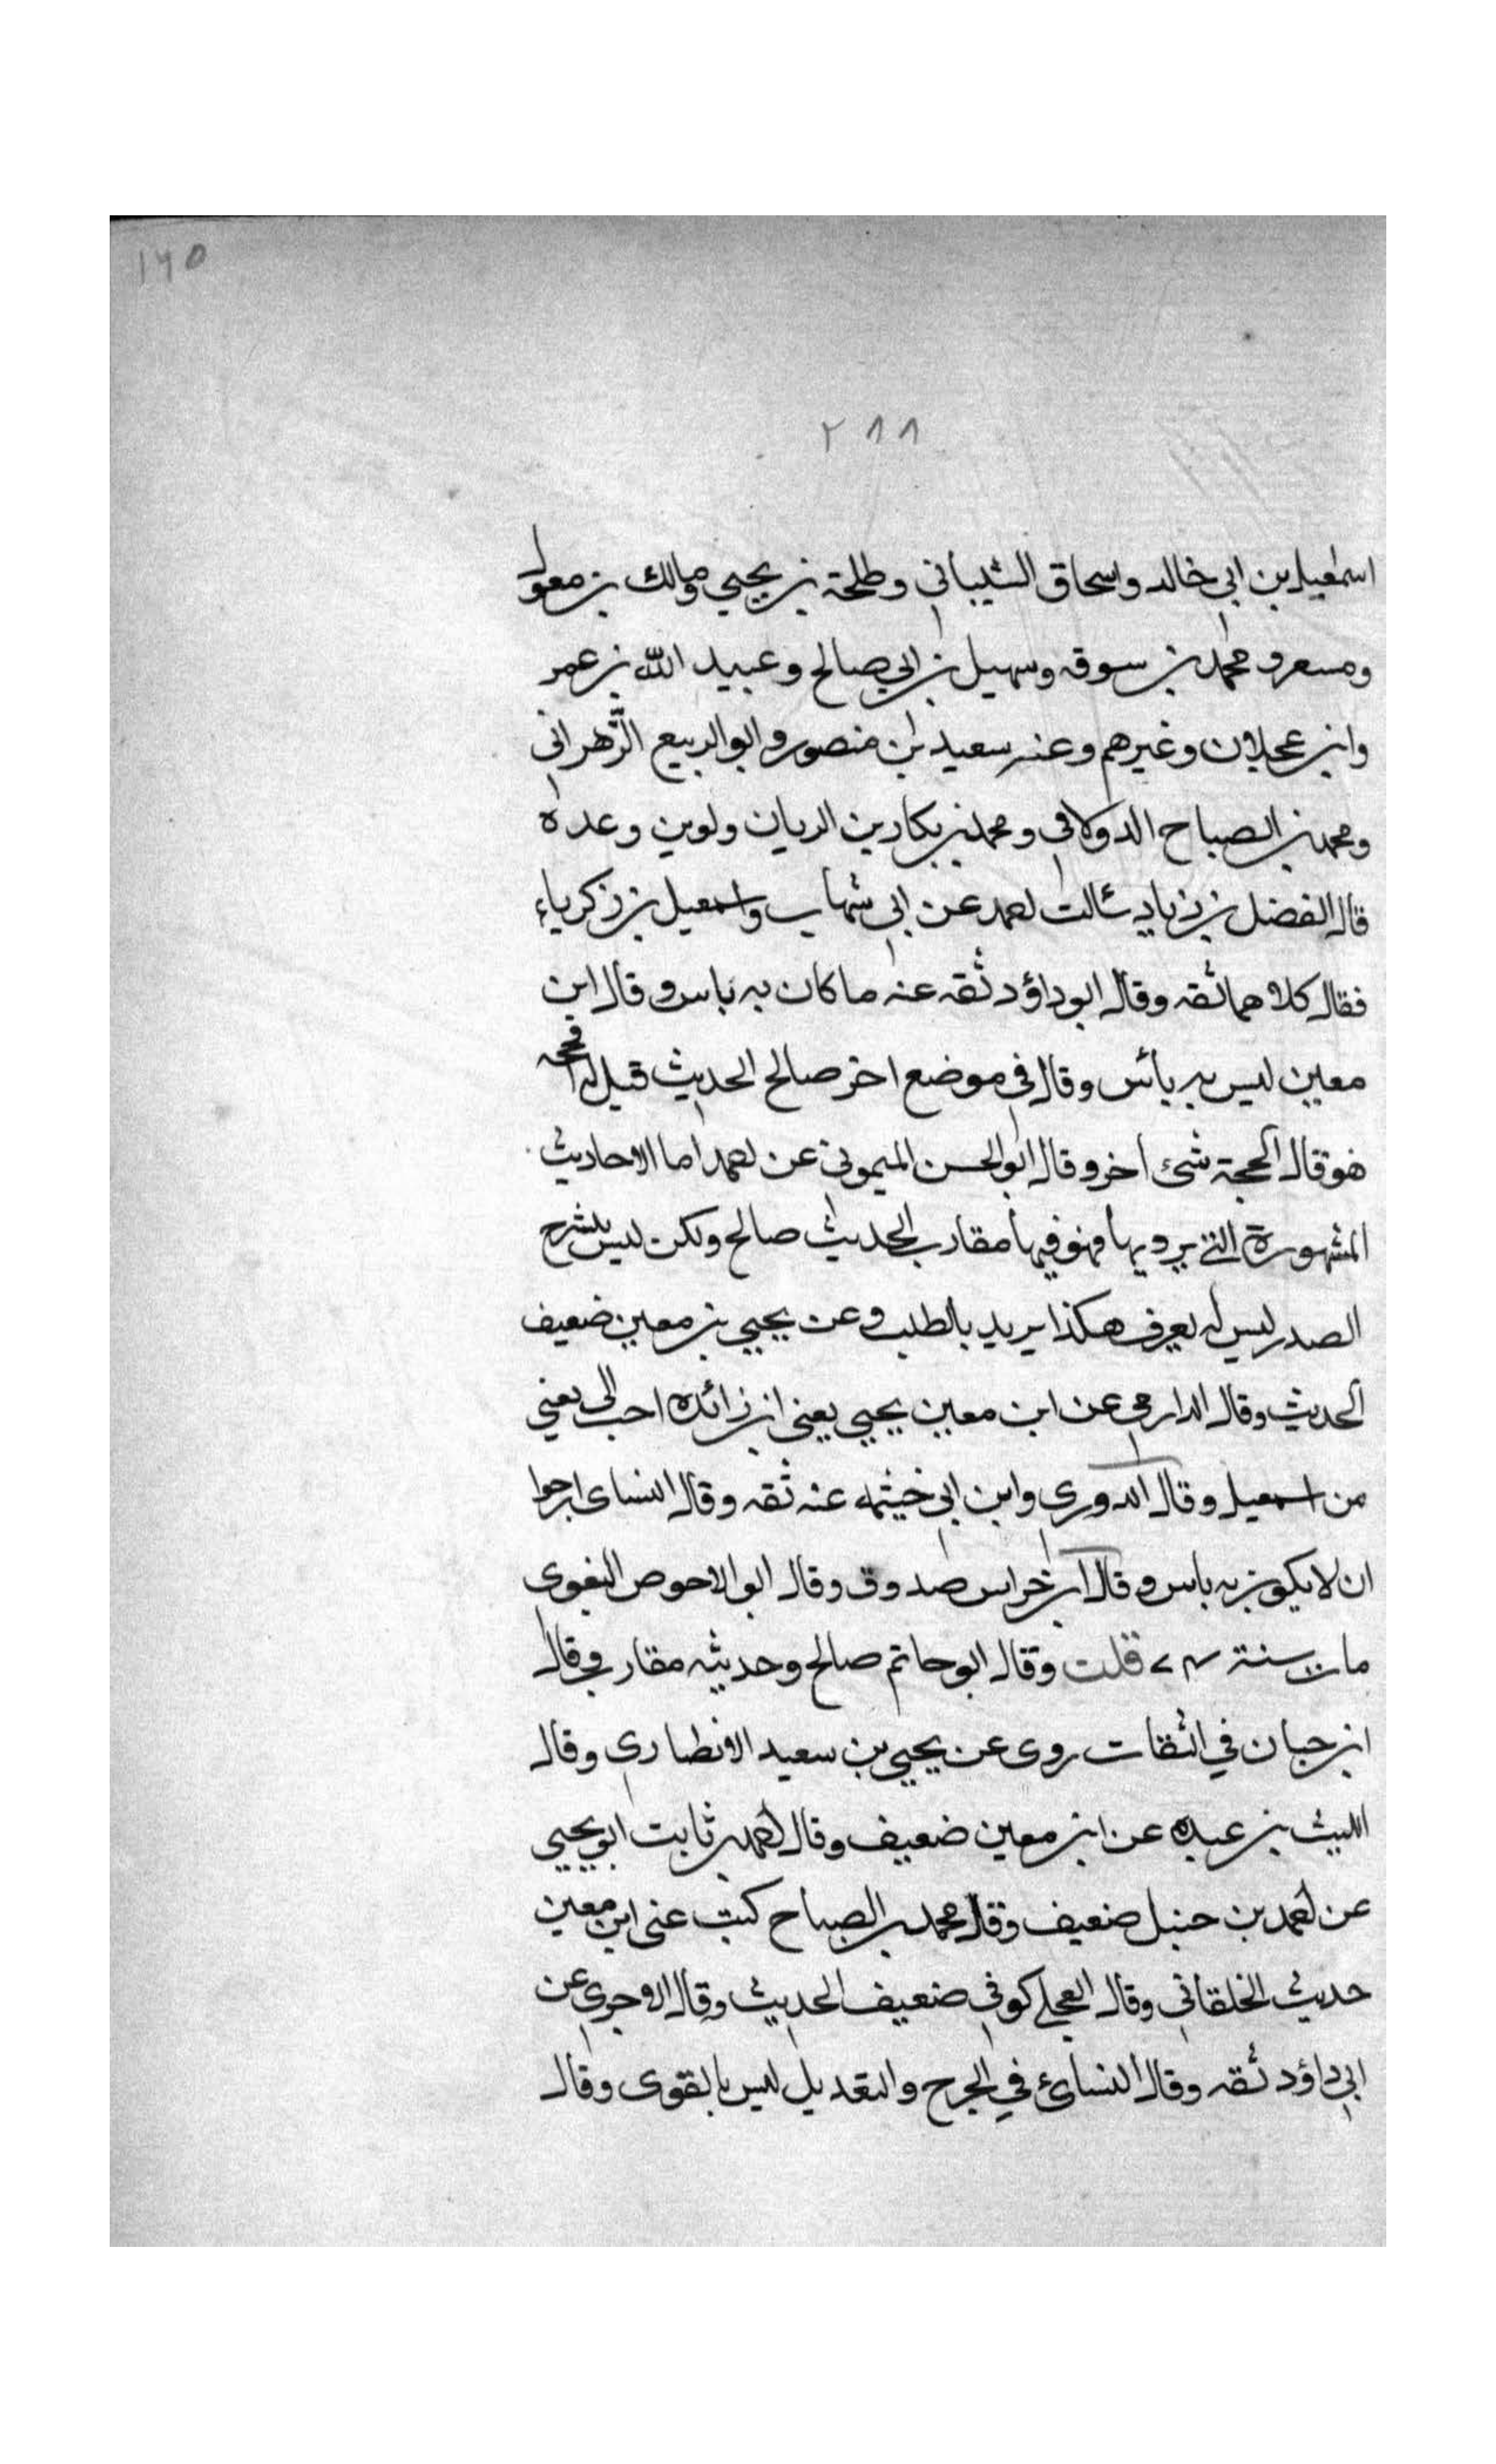 ١٦٥
٢٨٨
اسمعيل بن ابي خالد واسحاق الشيباني وطلحة بن يحيي ومالك بن مغول
ومسعر و محمد بن سوقه وسهيل بن ابي صالح وعبيد الله بن عمر
وابن عجلان وغيرهم وعنه سعيد بن منصور و ابو الربيع الزهراني
ومحمد بن الصباح الدولابي ومحمد بن بكار بن الريان ولوين وعده
قال الفضل بن زياد سئالت احمد عن ابي شهاب واسمعيل بن زكرياء
فقال كلاهما ثقه وقال ابو داؤد ثقه عنه ما كان به باس وقال ابن
معين ليس به بائس وقال في موضع اخر صالح الحديث قيل له افحجه
هو قال الحجة شئ اخر وقال ابو الحسن الميموني عن احمد اما الاحاديث
المشهورة التي يرويها فهو فيها مقارب الحديث صالح ولكن ليس يشرح
الصدر ليس له يعرف هكذا يريد بالطلب وعن يحيي بن معين ضعيف
الحديث وقال الدارمي عن ابن معين يحيي يعني ابن زائده احب الي يعني
من اسمعيل وقال الدوري وابن ابي خيثمه عنه ثقه وقال النساى ارجوا
ان لا يكون به باس وقال ابن خراس صدوق وقال ابو الاحوص البغوى
مات سنة قلت وقال ابو حاتم صالح وحديثه مقارب قال
ابن حبان في الثقات روى عن يحيي بن سعيد الانصارى وقال
الليث بن عبده عن ابن معين ضعيف وقال احمد بن ثابت ابو يحيي
عن احمد بن حنبل ضعيف وقال محمد بن الصباح كتب عنى ابن معين
حديث الخلقاني وقال العجلي كوفي ضعيف الحديث وقال الاجرى عن
ابي داؤد ثقه وقال النسائ في الجرح والتعديل ليس بالقوى وقال